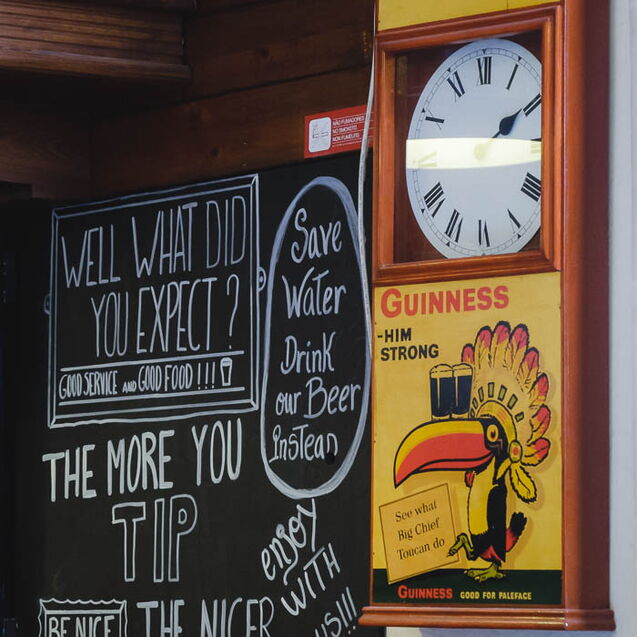 WELL WHAT DID
YOU EXPECT?
GOOD SERVICE AND GOOD FOOD !!!
THE MORE YOU
TIP
BE NICE
THE NICER
Save
Water
Drink
our Beer
instead
enjoy
WITH
US!!!
NÃO FUMADORES
NO SMOKING
NON FUMEURS
XII
I
II
III
IIII
V
VI
VII
VIII
IX
X
XI
GUINNESS
-HIM
STRONG
See what
Big Chief
Toucan do
GUINNESS GOOD FOR PALEFACE